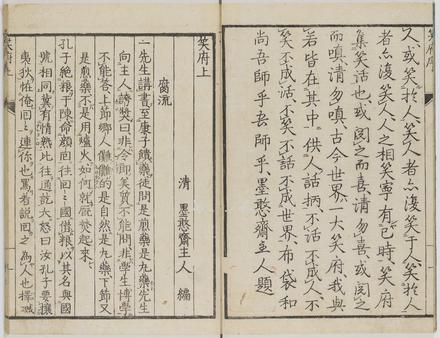 笑府序
人或笑於人笑人者亦復笑于人笑於人
者亦復笑人人之相笑寧有已時笑府
集笑話也或閱之而喜請勿喜或閱之
而嗔請勿嗔古今世界一大笑府我與
若皆在其中供人話柄不話不成人不
笑不成話不笑不話不成世界布袋和
尚吾師乎吾師乎墨憨齋主人題
笑府上
清 墨憨齋主人 編
腐流
一先生講書至康子饋藥徒問是煎藥是丸藥先生
向主人誇獎曰非令郎美質不能問非學生博學
不能答上節鄉人儺儺的是自然是丸藥下節又
是煎藥不是用爐火如何就廐焚起來
孔子絕糧于陳命顏回往回回國借糧以其名與國
號相同冀有情熟比往通訖大怒曰汝孔子要攘
夷狄怪俺回回連你也罵着説回之為人也擇賊
笑府上